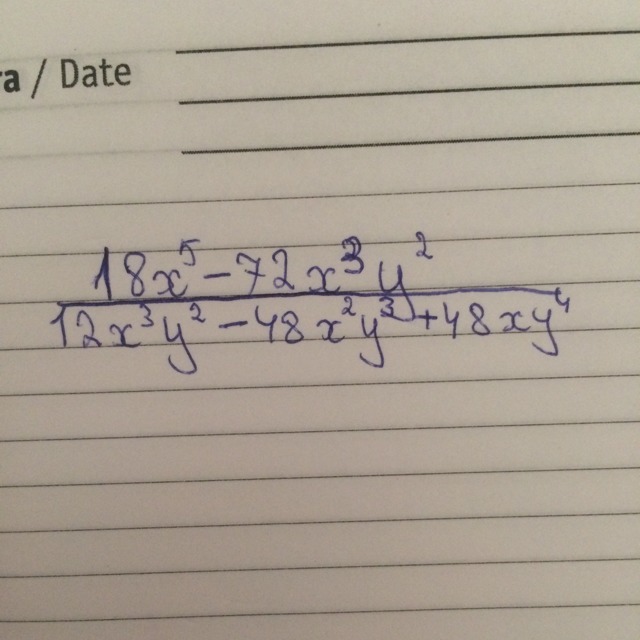 ra / Date
18x⁵ - 72x³y²
12x³y² - 48x²y³ + 48xy⁴